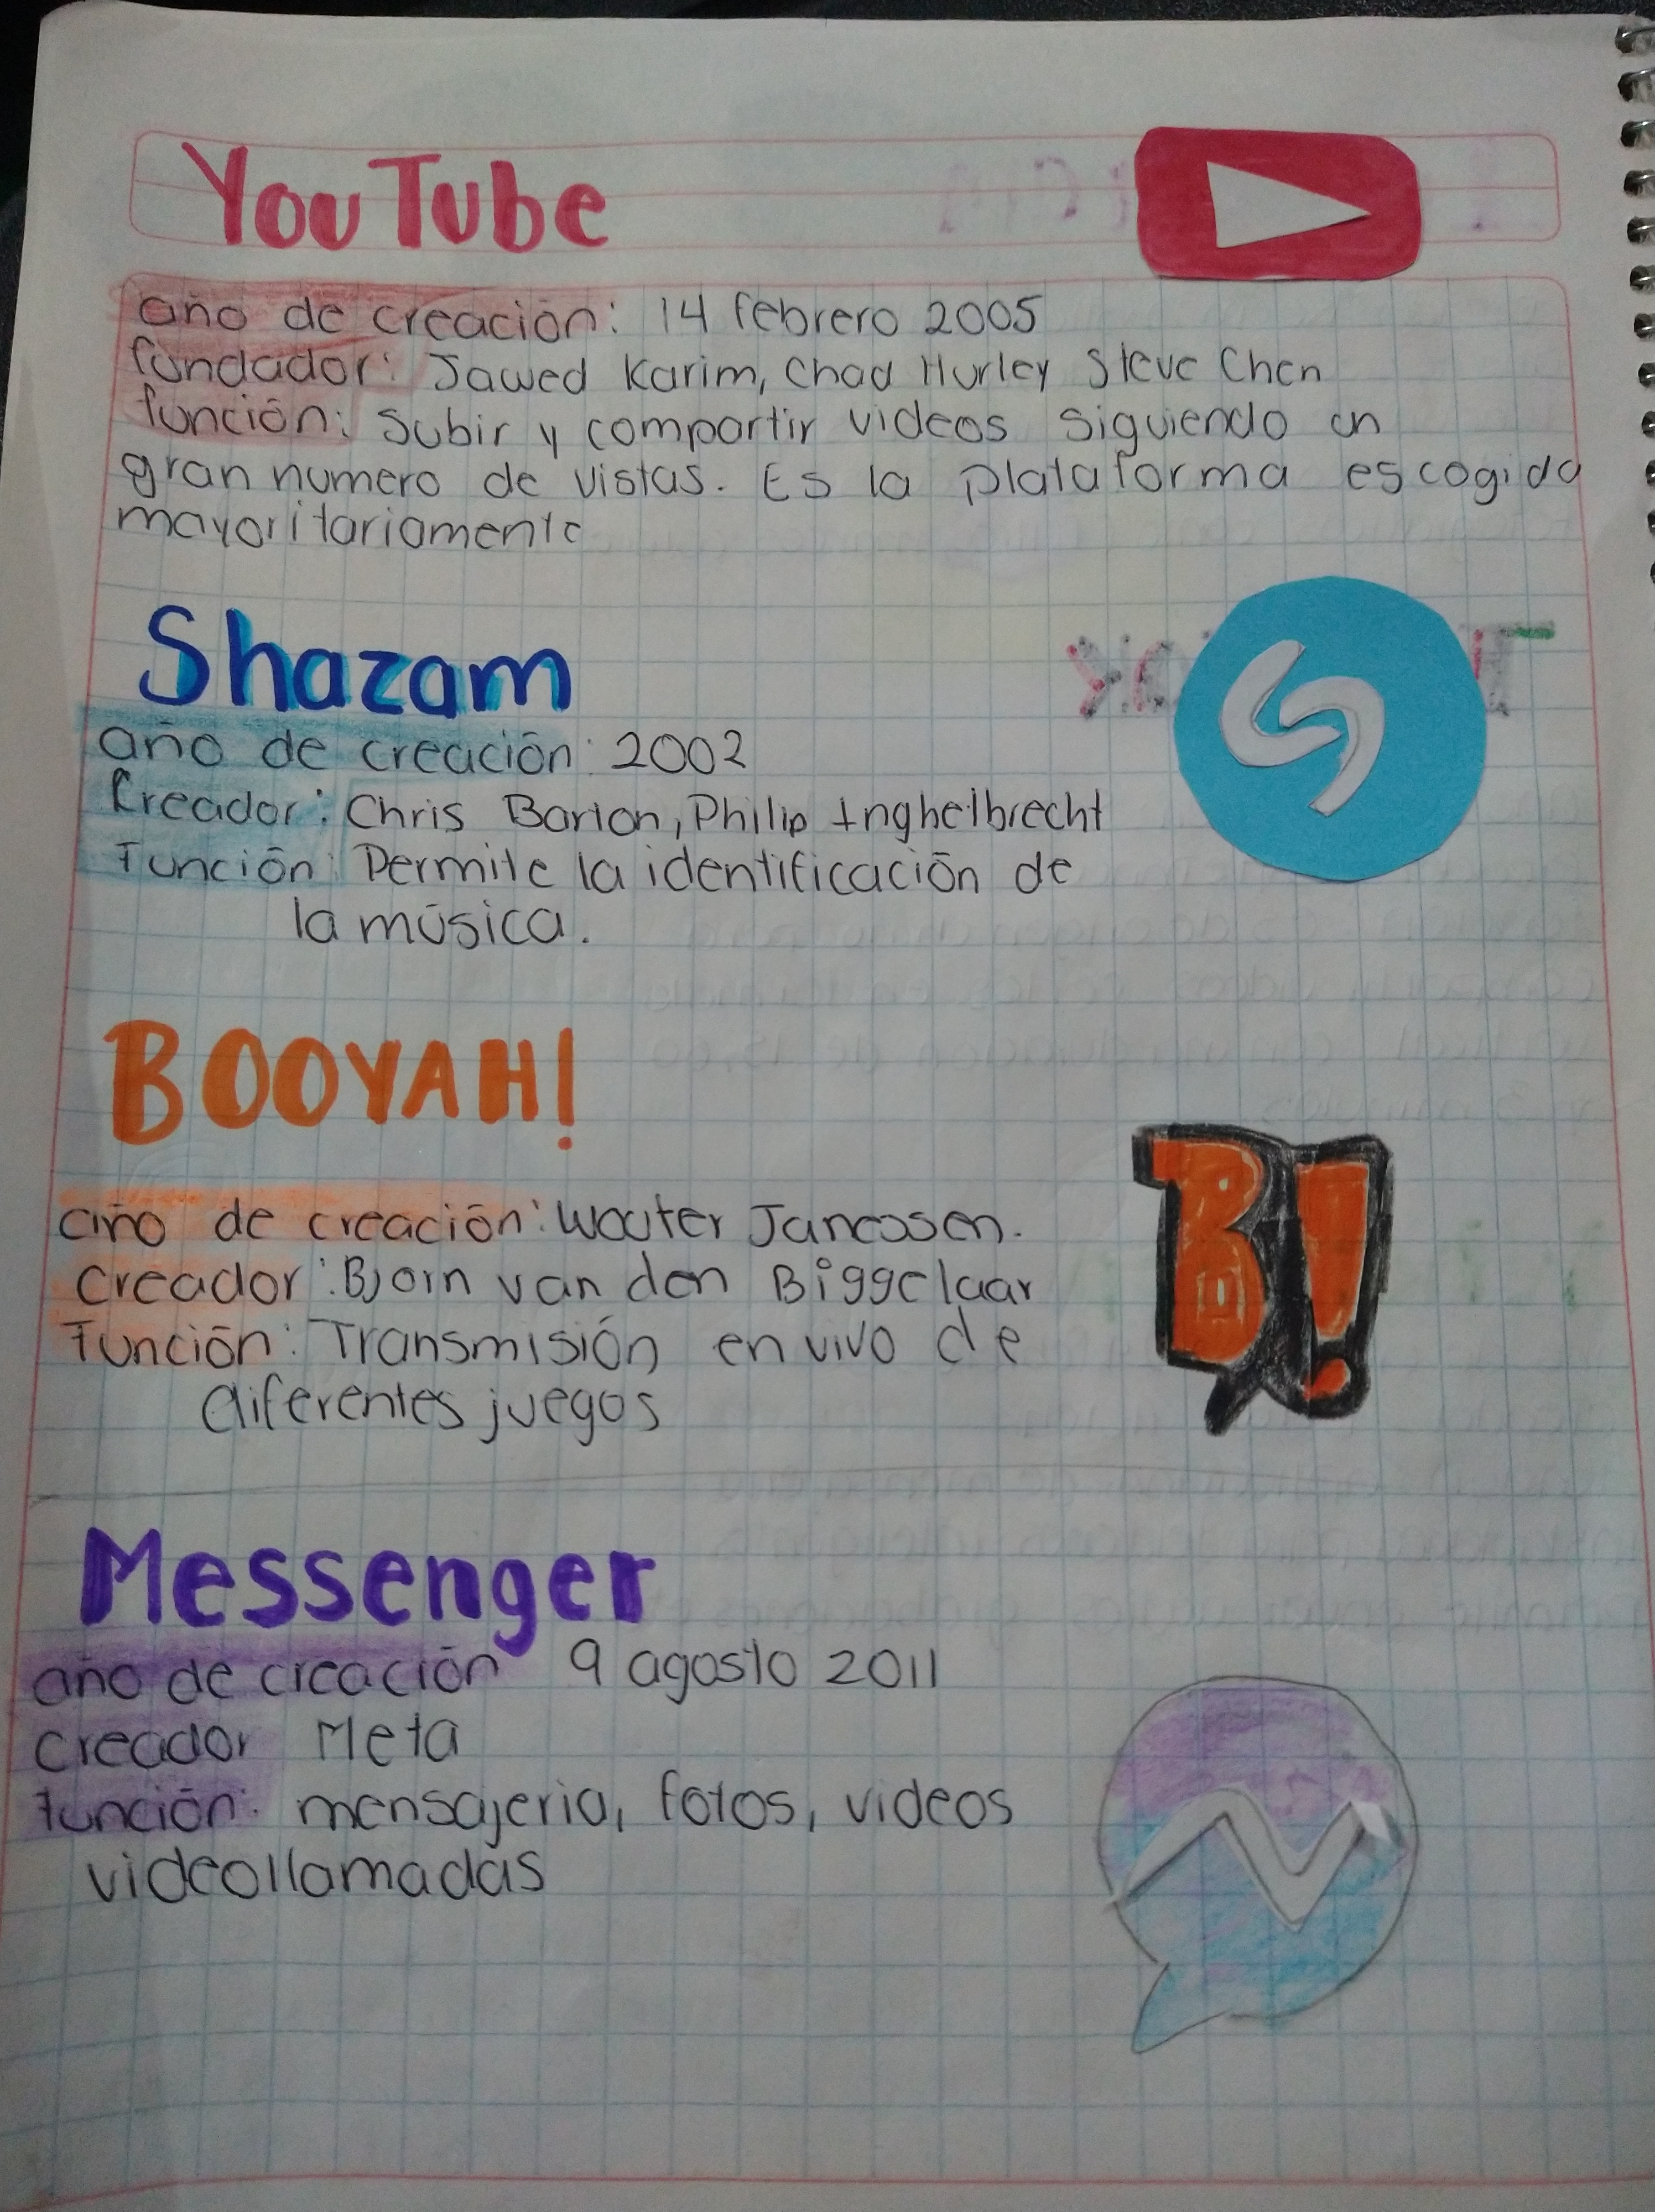 YouTube
año de creación: 14 febrero 2005
fundador: Jawed Karim, Chad Hurley Steve Chen
función: Subir y compartir videos siguiendo un
gran numero de vistas. Es la plataforma escogida
mayoritariamente
Shazam
año de creación: 2002
Creador: Chris Barton, Philip Inghelbrecht
Función: Permite la identificación de
la música.
BOOYAH!
año de creación: Wouter Janessen.
Creador: Bjorn van den Biggelaar
Función: Transmisión en vivo de
diferentes juegos
B!
Messenger
año de creación 9 agosto 2011
Creador Meta
función: mensajeria, fotos, videos
videollamadas